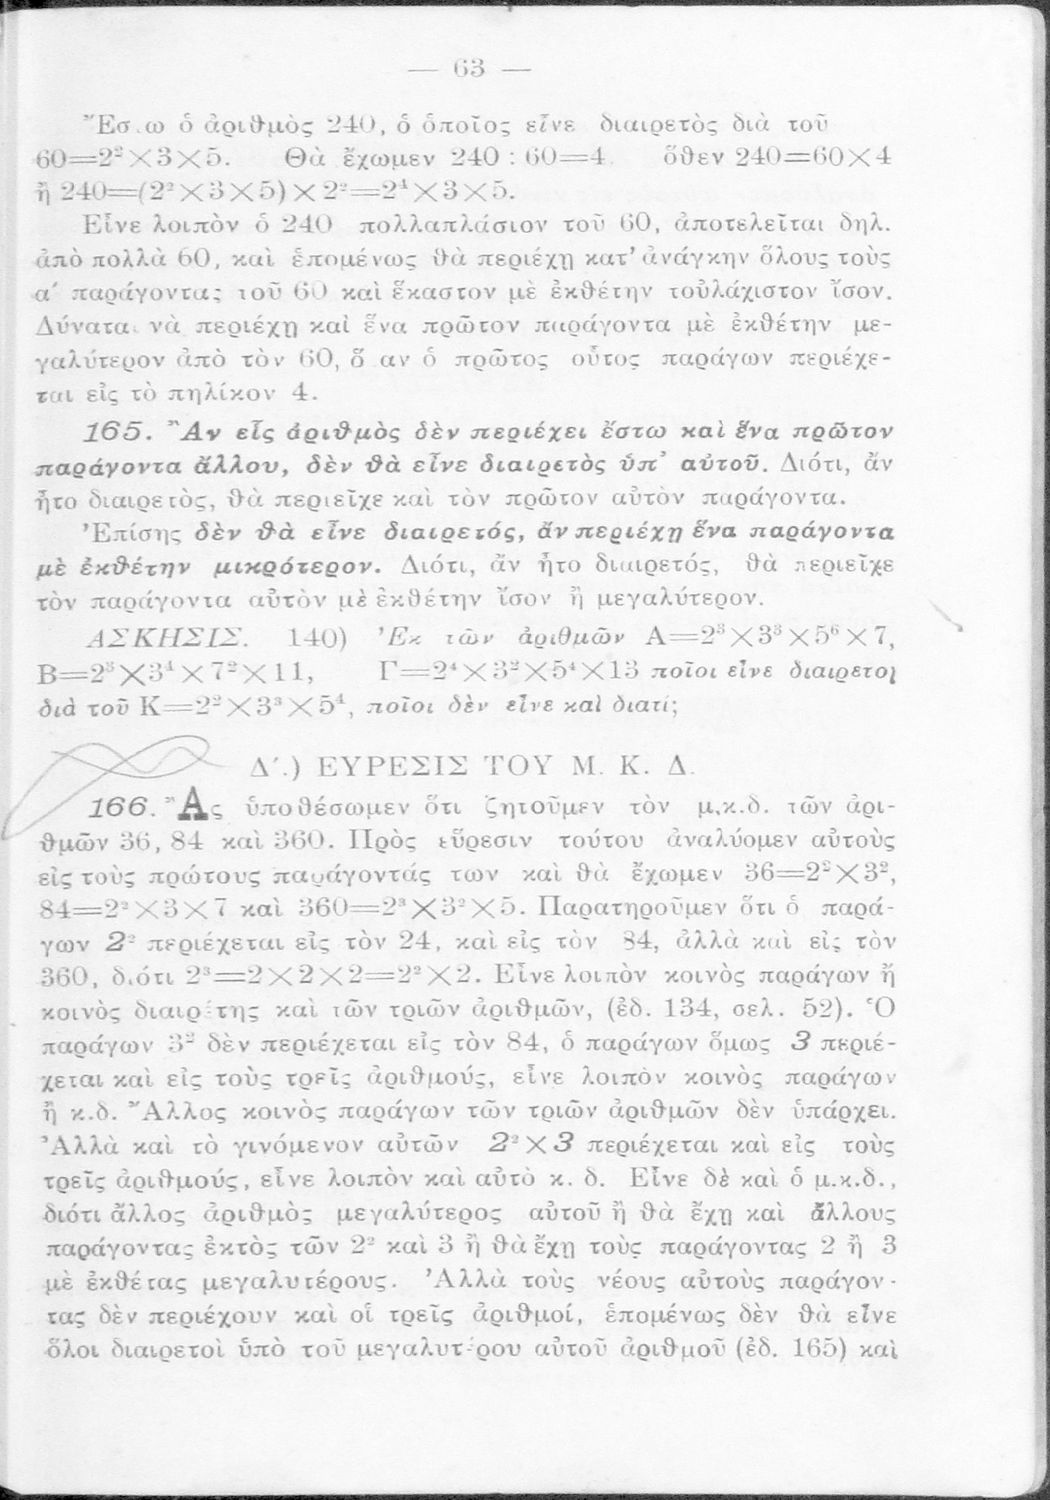 — 63 —
Ἔσ.ω ὁ ἀριθμὸς 240, ὁ ὁποῖος εἶνε διαιρετὸς διὰ τοῦ
60=2²×3×5. Θὰ ἔχωμεν 240 : 60=4. ὅθεν 240=60×4
ἢ 240=(2²×3×5)×2²=2⁴×3×5.
Εἶνε λοιπὸν ὁ 240 πολλαπλάσιον τοῦ 60, ἀποτελεῖται δηλ.
ἀπὸ πολλὰ 60, καὶ ἑπομένως θὰ περιέχῃ κατ' ἀνάγκην ὅλους τοὺς
α′ παράγοντας τοῦ 60 καὶ ἕκαστον μὲ ἐκθέτην τοὐλάχιστον ἴσον.
Δύναται νὰ περιέχῃ καὶ ἕνα πρῶτον παράγοντα μὲ ἐκθέτην με-
γαλύτερον ἀπὸ τὸν 60, ὅ αν ὁ πρῶτος οὗτος παράγων περιέχε-
ται εἰς τὸ πηλίκον 4.
165. Ἂν εἷς ἀριθμὸς δὲν περιέχει ἔστω καὶ ἕνα πρῶτον
παράγοντα ἄλλου, δὲν θὰ εἶνε διαιρετὸς ὑπ' αὐτοῦ. Διότι, ἂν
ἦτο διαιρετὸς, θὰ περιεῖχε καὶ τὸν πρῶτον αὐτὸν παράγοντα.
Ἐπίσης δὲν θὰ εἶνε διαιρετός, ἂν περιέχῃ ἕνα παράγοντα
μὲ ἐκθέτην μικρότερον. Διότι, ἂν ἦτο διαιρετός, θὰ περιεῖχε
τὸν παράγοντα αὐτὸν μὲ ἐκθέτην ἴσον ἢ μεγαλύτερον.
ΑΣΚΗΣΙΣ. 140) Ἐκ τῶν ἀριθμῶν Α=2³×3³×5⁶×7,
Β=2³×3⁴×7²×11, Γ=2⁴×3²×5⁴×13 ποῖοι εἶνε διαιρετοὶ
διὰ τοῦ Κ=2²×3³×5⁴, ποῖοι δὲν εἶνε καὶ διατί;
Δ′.) ΕΥΡΕΣΙΣ ΤΟΥ Μ. Κ. Δ.
166. Ἂς ὑποθέσωμεν ὅτι ζητοῦμεν τὸν μ.κ.δ. τῶν ἀρι-
θμῶν 36, 84 καὶ 360. Πρὸς εὕρεσιν τούτου ἀναλύομεν αὐτοὺς
εἰς τοὺς πρώτους παράγοντάς των καὶ θὰ ἔχωμεν 36=2²×3²,
84=2²×3×7 καὶ 360=2³×3²×5. Παρατηροῦμεν ὅτι ὁ παρά-
γων 2² περιέχεται εἰς τὸν 24, καὶ εἰς τὸν 84, ἀλλὰ καὶ εἰς τὸν
360, διότι 2³=2×2×2=2²×2. Εἶνε λοιπὸν κοινὸς παράγων ἤ
κοινὸς διαιρέτης καὶ τῶν τριῶν ἀριθμῶν, (ἐδ. 134, σελ. 52). Ὁ
παράγων 3² δὲν περιέχεται εἰς τὸν 84, ὁ παράγων ὅμως 3 περιέ-
χεται καὶ εἰς τοὺς τρεῖς ἀριθμούς, εἶνε λοιπὸν κοινὸς παράγων
ἢ κ.δ. Ἄλλος κοινὸς παράγων τῶν τριῶν ἀριθμῶν δὲν ὑπάρχει.
Ἀλλὰ καὶ τὸ γινόμενον αὐτῶν 2²×3 περιέχεται καὶ εἰς τοὺς
τρεῖς ἀριθμούς, εἶνε λοιπὸν καὶ αὐτὸ κ. δ. Εἶνε δὲ καὶ ὁ μ.κ.δ.,
διότι ἄλλος ἀριθμὸς μεγαλύτερος αὐτοῦ ἢ θὰ ἔχῃ καὶ ἄλλους
παράγοντας ἐκτὸς τῶν 2² καὶ 3 ἢ θὰ ἔχῃ τοὺς παράγοντας 2 ἢ 3
μὲ ἐκθέτας μεγαλυτέρους. Ἀλλὰ τοὺς νέους αὐτοὺς παράγον-
τας δὲν περιέχουν καὶ οἱ τρεῖς ἀριθμοί, ἑπομένως δὲν θὰ εἶνε
ὅλοι διαιρετοὶ ὑπὸ τοῦ μεγαλυτέρου αὐτοῦ ἀριθμοῦ (ἐδ. 165) καὶ